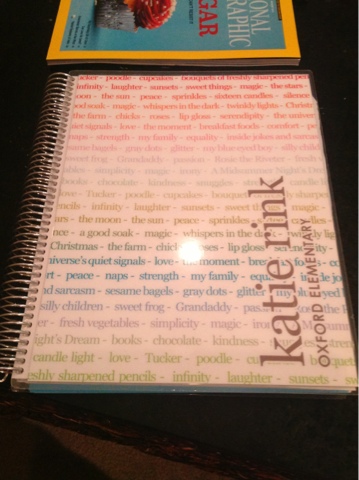 ONAL
GRAPHIC
GAR
poodle - cupcakes - bouquets of freshly sharpened pen
infinity - laughter - sunsets - sweet things - magic - the stars
soon - the sun - peace - sprinkles - sixteen candles - silence
ood soak - magic - whispers in the dark - twinkly lights - Christ
the farm - chicks - roses - lip gloss - serendipity - the universe's
quiet signals - love - the moment - breakfast foods - comfort - pe
naps - strength - my family - equality - inside jokes and sarcasm
same bagels - gray dots - glitter - my blue eyed boy - silly child
sweet frog - Grandaddy - Rosie the Riveter
simplicity - magic - A Midsummer Night's
books - chocolate - kindness - snuggles
love - Tucker - poodle - cupcakes - bouq
encils - infinity - laughter - sunsets - swe magic
ars - the moon - the sun - peace - sprinkles
nce - a good soak - magic - whispers in the dark
Christmas - the farm - chicks - roses - lip gloss
universe's quiet signals - love - the moment
art - peace - naps - strength - my family - equ
nd sarcasm - sesame bagels - gray dots - glitter - my
silly children - sweet frog - Grandaddy
er - fresh vegetables - simplicity - magic
ight's Dream - books - chocolate - kindness
candle light - love - Tucker - poodle - cu
eshly sharpened pencils - infinity - laughter - sunsets - sw
katie rink
OXFORD ELEMENTARY